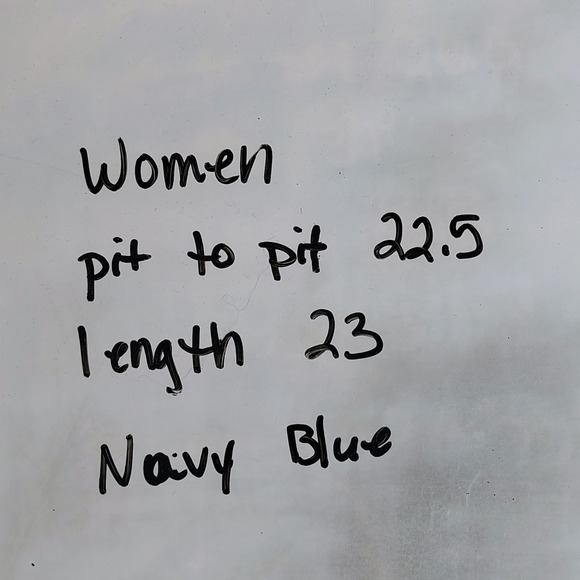 Women
pit to pit 22.5
length 23
Navy Blue